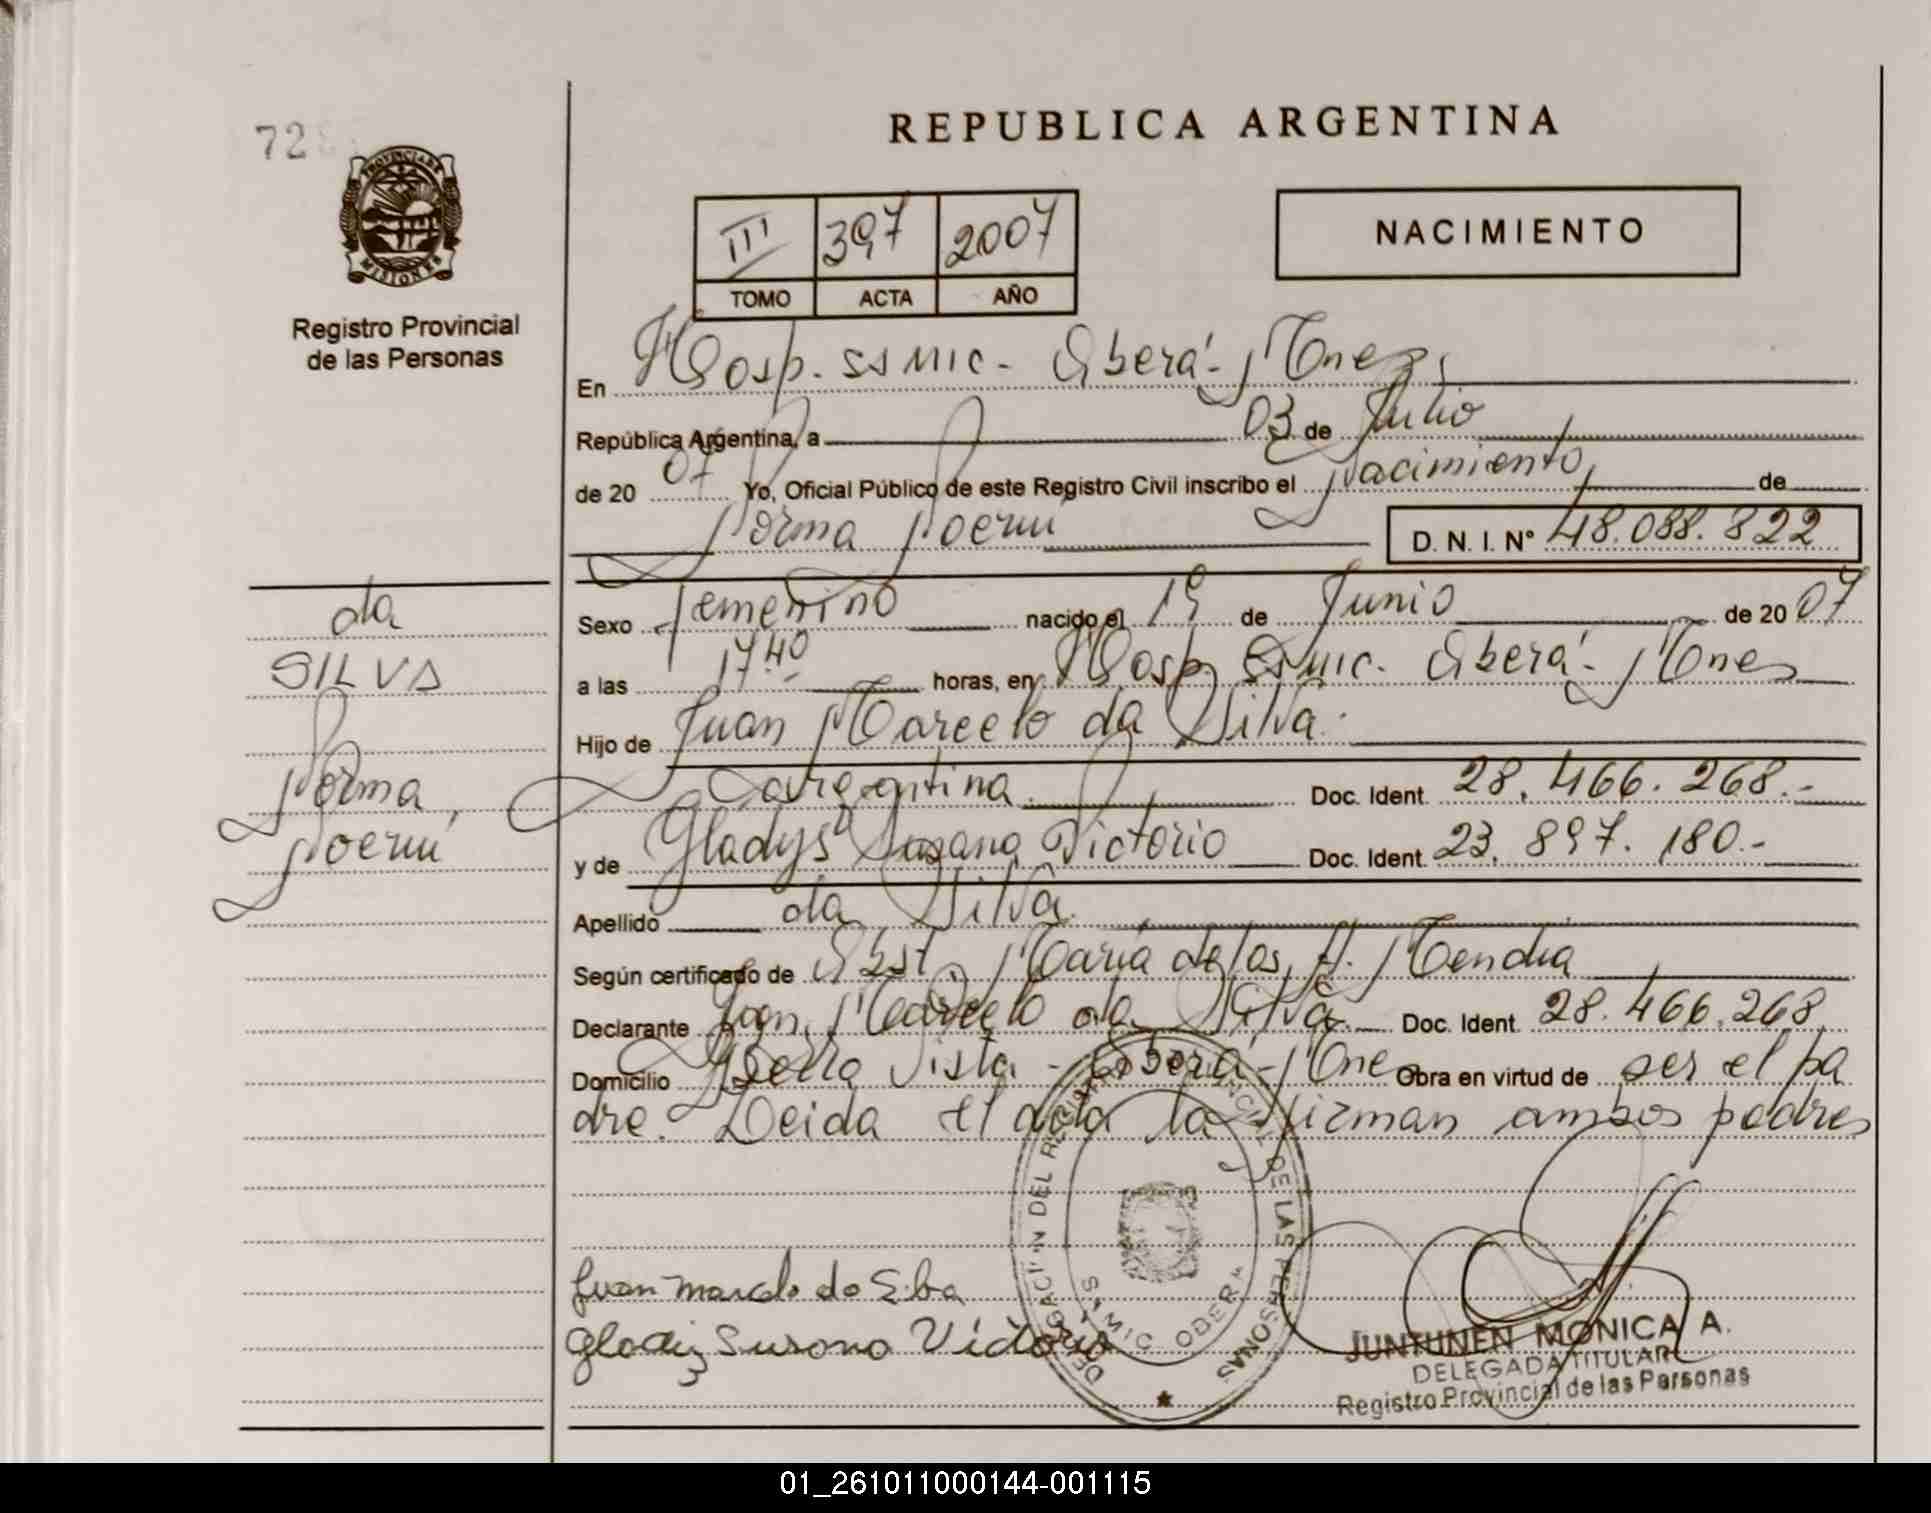 REPUBLICA ARGENTINA
72
PROVINCIA DE
MISIONES
Registro Provincial
de las Personas
III 397 2007
TOMO ACTA AÑO
NACIMIENTO
En Hosp. SSMIC - Oberá - Mnes,
República Argentina, a 03 de Julio
de 20 07 Yo, Oficial Público de este Registro Civil inscribo el Nacimiento, de
Norma Noemi
D. N. I. N° 48.088.822
Sexo femenino nacido el 19 de Junio de 20 07
a las 17:40 horas, en Hosp. SSMIC. Oberá - Mnes
Hijo de Juan Marcelo da Silva.
argentina Doc. Ident. 28.466.268.-
y de Gladys Susana Victorio Doc. Ident. 23.897.180.-
Apellido da Silva.
Según certificado de Obst. María de los A.
Declarante Juan Marcelo da Silva. Doc. Ident. 28.466.268
Domicilio Bella Vista - Oberá - Mnes Obra en virtud de ser el pa
dre. Leida el acta la firman ambos padres
da
SILVA
Norma
Noemi
Juan Marcelo da Silva
Gladiz Susana Victorio
DELEGACION DEL REGISTRO PROVINCIAL DE LAS PERSONAS
SAMIC OBERA
JUNTUNEN MONICA A.
DELEGADA TITULAR
Registro Provincial de las Personas
01_261011000144-001115